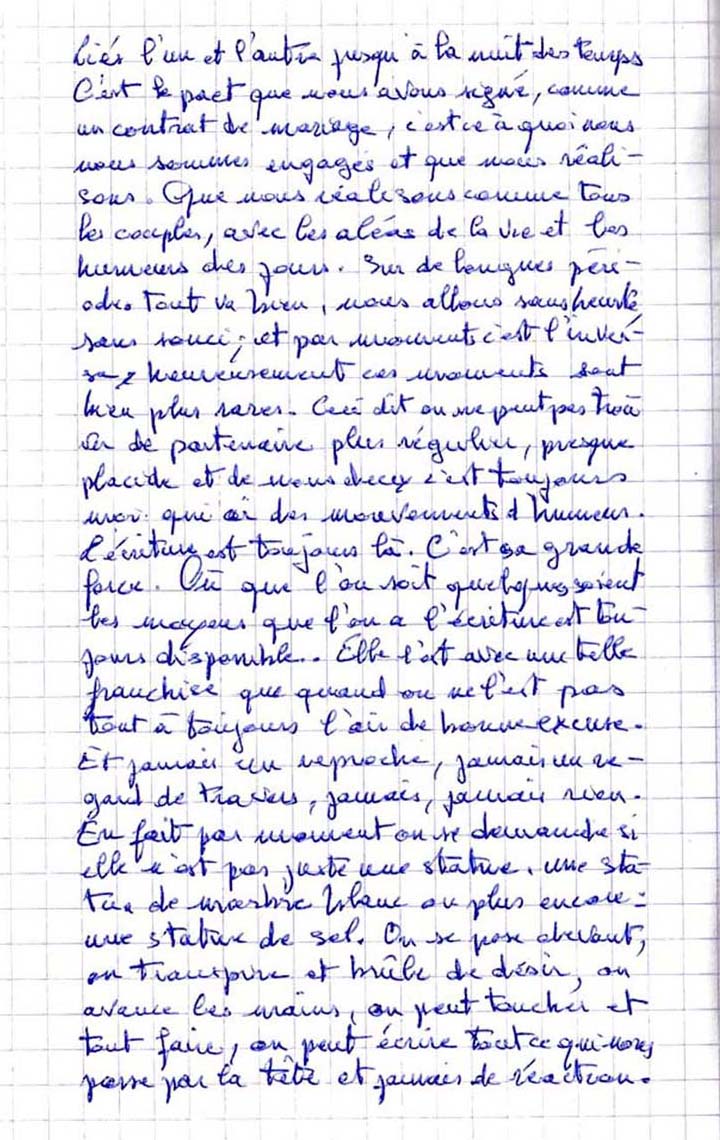 liés l'un et l'autre jusqu'à la nuit des temps
C'est le pact que nous avons signé, comme
un contrat de mariage, c'est ce à quoi nous
nous sommes engagés et que nous réali-
sons. Que nous réalisons comme tous
les couples, avec les aléas de la vie et les
humeurs des jours. Sur de longues péri-
odes tout va bien, nous allons sans heurts
sans souci; et par moments c'est l'inver-
se heureusement ces moments sont
bien plus rares. Ceci dit on ne peut pas trou
ver de partenaire plus régulier, presque
placide et de nous deux c'est toujours
moi qui ai des mouvements d'humeur.
L'écriture est toujours là. C'est sa grande
force. Où que l'on soit quelques soient
les moyens que l'on a l'écriture est tou-
jours disponible.. Elle l'est avec une telle
franchise que quand on ne l'est pas
tout à toujours l'air de bonne excuse.
Et jamais un reproche, jamais un re-
gard de travers, jamais, jamais rien.
En fait par moment on se demande si
elle n'est pas juste une statue. une sta-
tue de marbre blanc ou plus encore :
une statue de sel. On se pose devant,
on transpire et brûle de désir, on
avance les mains, on peut toucher et
tout faire, on peut écrire tout ce qui nous
passe par la tête et jamais de réaction.